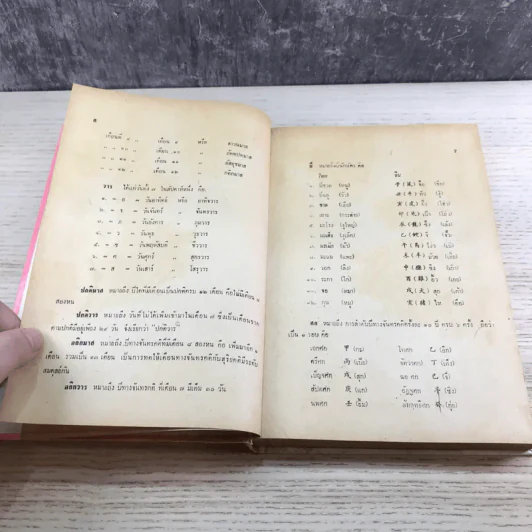 เดือนที่ ๘ " เดือน ๙ หรือ สาวนมาส
" ๙ " เดือน ๑๐ " ภัทรบทมาส
" ๑๐ " เดือน ๑๑ " อัสสุชมาส
" ๑๑ " เดือน ๑๒ " กัตติกมาส
วาร ได้แก่วันทั้ง ๗ ในสัปดาห์หนึ่ง คือ
๑ = ๑ = วันอาทิตย์ หรือ อาทิจวาร
๒ = ๒ = วันจันทร์ " จันทรวาร
๔ = ๔ = วันพุธ " วุธวาร
๕ = ๕ = วันพฤหัสบดี " ชีววาร
๖ = ๖ = วันศุกร์ " สุกรวาร
๗ = ๗ = วันเสาร์ " โสรวาร
ปกติมาส หมายถึง ปีใดที่มีเดือนเป็นปกติครบ ๑๒ เดือน คือไม่มีเดือน ๘
สองหน
ปกติวาร หมายถึง วันที่ไม่ได้เพิ่มเข้ามาในเดือน ๗ ซึ่งเป็นเดือนขาด
ตามปกติมีอยู่เพียง ๒๙ วัน จึงเรียกว่า ปกติวาร
อธิกมาส หมายถึง ปีทางจันทรคติที่มีเดือน ๘ สองหน คือ เพิ่มมาอีก ๑
เดือน รวมเป็น ๑๓ เดือน เป็นการทดให้เดือนทางจันทรคติกับสุริยคติมีระดับ
สมดุลย์กัน
อธิกวาร หมายถึง ปีทางจันทรคติ ที่เดือน ๗ มีเพิ่ม ๓๐ วัน
๗
ปี หมายถึงปีนักษัตร คือ
ไทย จีน
(หนู) 子 (鼠)
(วัว) 丑 (牛)
(เสือ) 寅 (虎)
เถาะ (กระต่าย) 卯 (兎)
มะโรง (งูใหญ่) 辰 (龍)
มะเส็ง (งูเล็ก) 巳 (蛇)
มะเมีย (ม้า) 午 (馬)
มะแม (แพะ) 未 (羊)
วอก (ลิง) 申 (猴)
ระกา (ไก่) 酉 (雞)
จอ (หมา) 戌 (犬)
กุน (หมู) 亥 (豬)
ศก หมายถึง การลำดับปีทางจันทรคติครั้งละ ๑๐ ปี ครบ ๖ ครั้ง ถือว่า
เป็น ๑ รอบ คือ
เอกศก 甲 (กะ) โทศก 乙 (อิก)
ตรีศก 丙 จัตวาศก 丁 (เต็ง)
เบญจศก 戊 ฉอศก 己 (กี๋)
สัปตศก 庚 (แก) อัฏฐศก 辛 (ซิง)
นพศก 壬 (ยิ้ม) สัมฤทธิศก